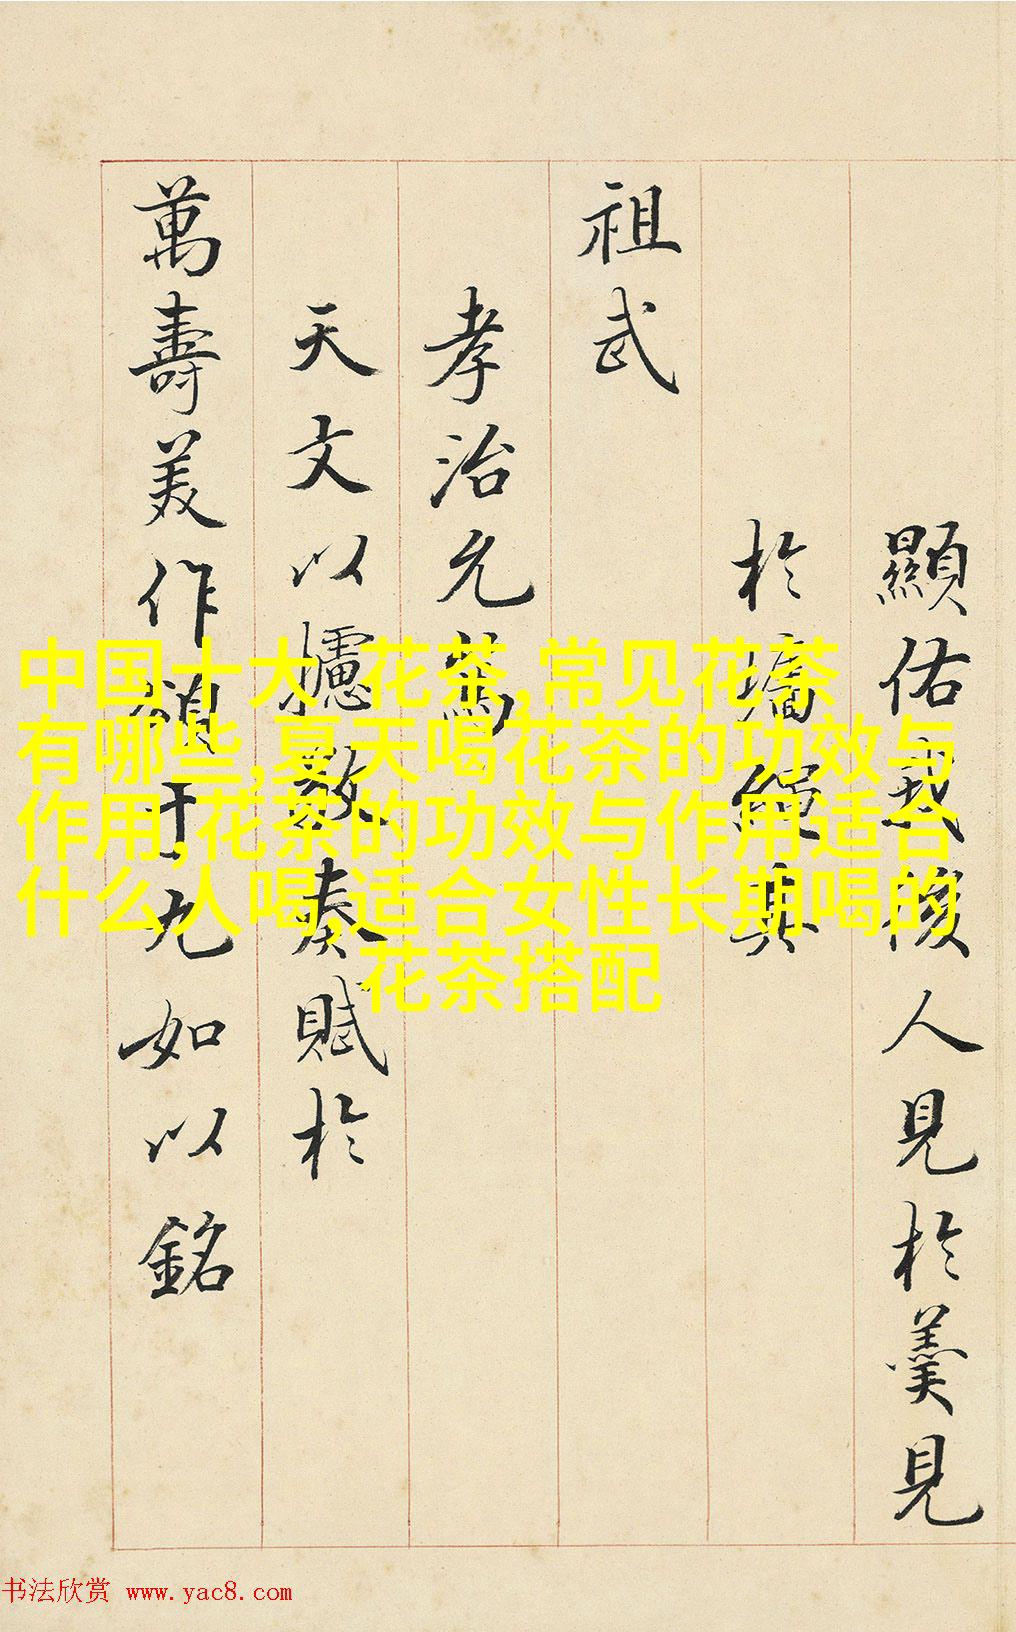 顯佑我後人見於羹見
於墻繩其
祖武
孝治允篤
天文以攄奏賦於
萬壽美作頌于九如以銘
中国十大花茶,常见花茶
有哪些,夏天喝花茶的功效与
作用,花茶的功效与作用适合
什么人喝,适合女性长期喝的
花茶搭配
书法欣赏 www.yac8.com